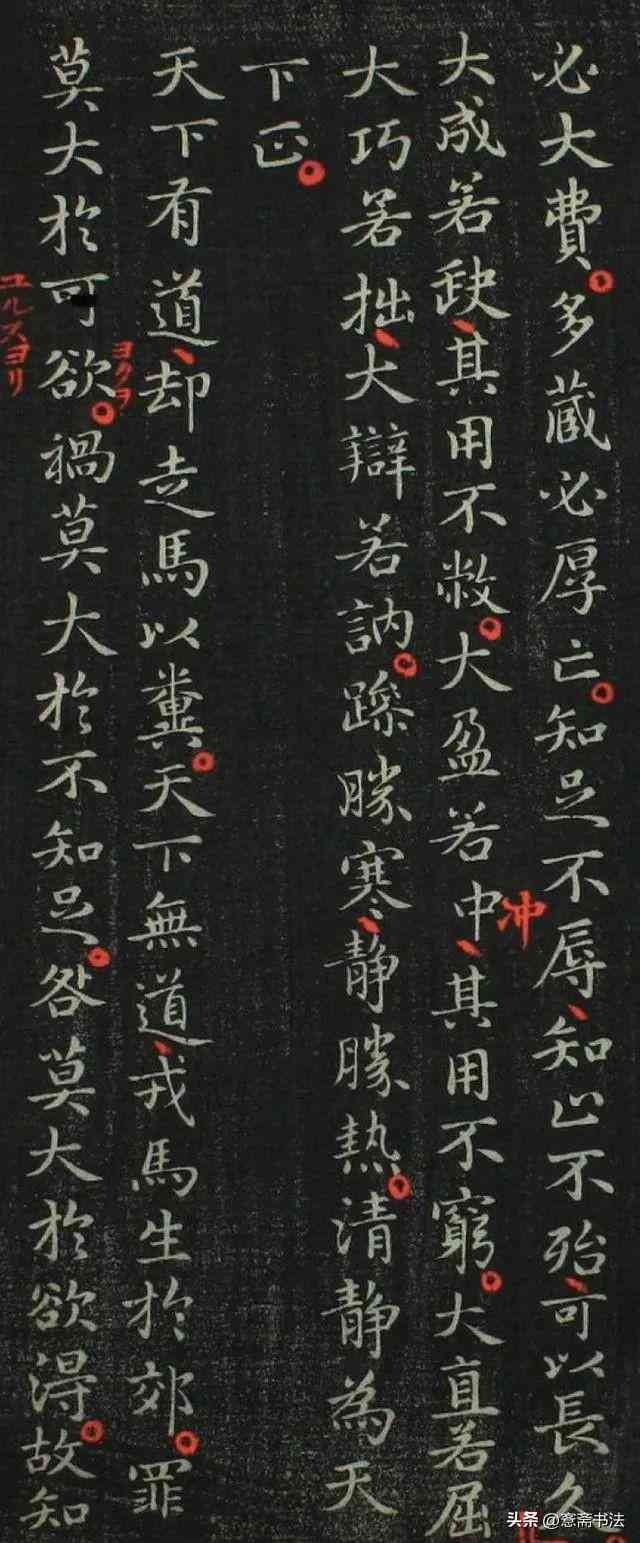 必大費多藏必厚亡知足不辱知止不殆可以長久
大成若缺其用不敝大盈若中其用不窮大直若屈
冲
大巧若拙大辯若訥躁勝寒靜勝熱清靜為天
下正
天下有道却走馬以糞天下無道戎馬生於郊罪
莫大於可欲禍莫大於不知足咎莫大於欲得故知
ヨクヲ
ユルスヨリ
头条 @愙斋书法